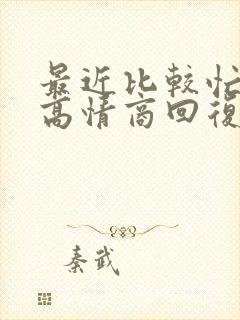 最近比較忙
高情商回復
秦武